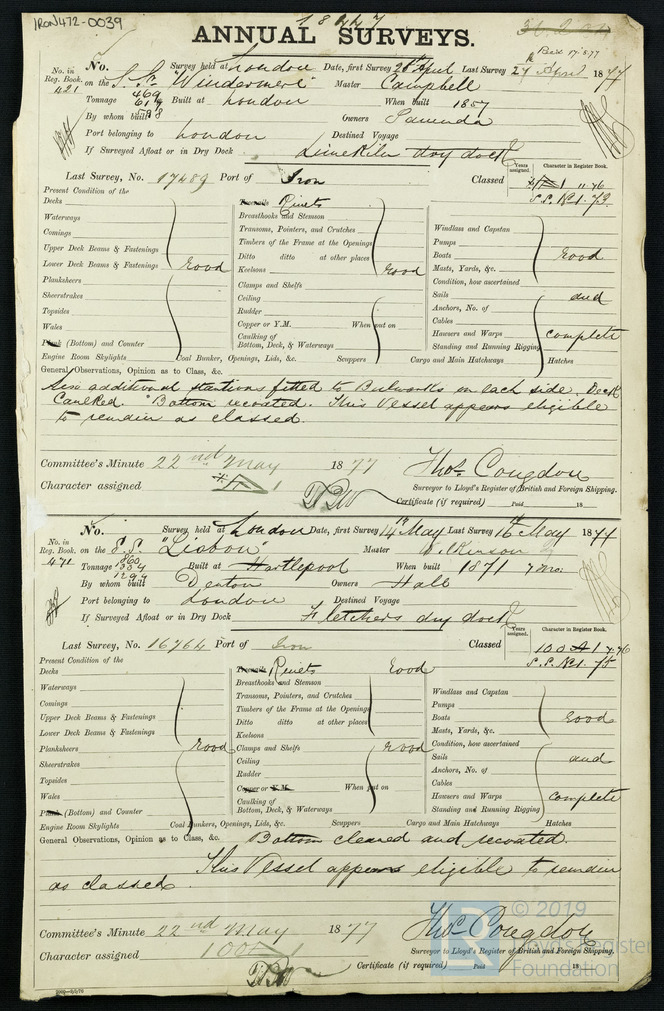 IRON472-0039
18447
ANNUAL SURVEYS.
Rec 17.5.77
No. in Reg. Book. 421
No. Survey held at London Date, first Survey 21st April Last Survey 27 April 1877
on the S.S. "Windermere" Master Campbell
Tonnage 469 619 Built at London When built 1857
By whom built Owners Samuda
Port belonging to London Destined Voyage
If Surveyed Afloat or in Dry Dock Limekiln dry dock
Years assigned. Character in Register Book.
Last Survey, No. 17489 Port of Iron Classed A 1 11.76
S.S. No 1. 73
Present Condition of the
Decks
Waterways
Comings
Upper Deck Beams & Fastenings
Lower Deck Beams & Fastenings Good
Planksheers
Sheerstrakes
Topsides
Wales
Plank (Bottom) and Counter
Engine Room Skylights
Treenails Rivets
Breasthooks and Stemson
Transoms, Pointers, and Crutches
Timbers of the Frame at the Openings
Ditto ditto at other places
Keelsons Good
Clamps and Shelfs
Ceiling
Rudder
Copper or Y.M. When put on
Caulking of Bottom, Deck, & Waterways
Coal Bunker, Openings, Lids, &c. Scuppers
Windlass and Capstan
Pumps
Boats Good
Masts, Yards, &c.
Condition, how ascertained
Sails and
Anchors, No. of
Cables
Hawsers and Warps complete
Standing and Running Rigging
Cargo and Main Hatchways Hatches
General Observations, Opinion as to Class, &c.
Six additional stantions fitted to Bulworks on each side. Deck
Caulked. Bottom recoated. This Vessel appears eligible
to remain as classed.
Committee's Minute 22nd May 1877 Thos. Congdon
Character assigned A 1 Surveyor to Lloyd's Register of British and Foreign Shipping.
Certificate (if required) Paid 18
No. in Reg. Book. 471
No. Survey held at London Date, first Survey 14th May Last Survey 16th May 1877
on the S.S. "Lisbon" Master Wilkinson
Tonnage 1860 1294 Built at Hartlepool When built 1871 7 mo:
By whom built Denton Owners Hall
Port belonging to London Destined Voyage
If Surveyed Afloat or in Dry Dock Fletchers dry dock
Years assigned. Character in Register Book.
Last Survey, No. 16764 Port of Iron Classed 100 A 1 7.76
S.S. No 1. 75
Present Condition of the
Decks
Waterways
Comings
Upper Deck Beams & Fastenings
Lower Deck Beams & Fastenings
Planksheers Good
Sheerstrakes
Topsides
Wales
Plank (Bottom) and Counter
Engine Room Skylights
Treenails Rivets Good
Breasthooks and Stemson
Transoms, Pointers, and Crutches
Timbers of the Frame at the Openings
Ditto ditto at other places
Keelsons
Clamps and Shelfs Good
Ceiling
Rudder
Copper or Y.M. When put on
Caulking of Bottom, Deck, & Waterways
Coal Bunkers, Openings, Lids, &c. Scuppers
Windlass and Capstan
Pumps
Boats Good
Masts, Yards, &c.
Condition, how ascertained
Sails and
Anchors, No. of
Cables
Hawsers and Warps complete
Standing and Running Rigging
Cargo and Main Hatchways Hatches
General Observations, Opinion as to Class, &c. Bottom cleaned and recoated.
This Vessel appears eligible to remain
as classed.
Committee's Minute 22nd May 1877 Thos. Congdon
Character assigned 100 A 1 Surveyor to Lloyd's Register of British and Foreign Shipping.
Certificate (if required) Paid 18
© 2019
Lloyd's Register
Foundation